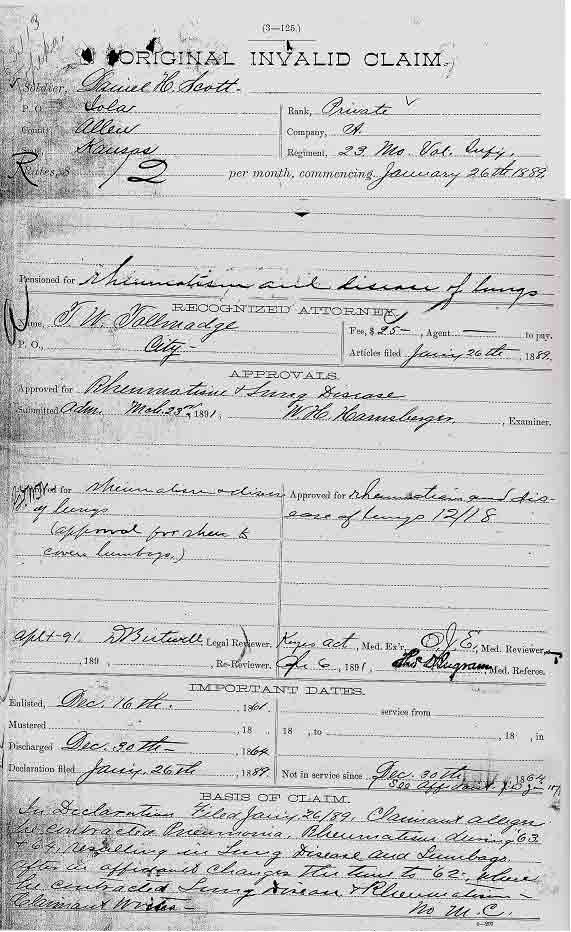 (3—125.)
ORIGINAL INVALID CLAIM.
Soldier, Daniel H. Scott
P. O. Iola Rank, Private
County Allen Company, A
Kansas Regiment, 23 Mo. Vol. Infy,
Rate, $ 12 per month, commencing January 26th 1889
Pensioned for rheumatism and disease of lungs
RECOGNIZED ATTORNEY.
Name, T. W. Tallmadge Fee, $25 —, Agent — to pay.
P. O., City — Articles filed Jany 26th, 1889.
APPROVALS.
Approved for Rheumatism & Lung Disease
Submitted Adm. Mch. 23rd, 1891, W. H. Harnsberger, Examiner.
for rheumatism disease Approved for rheumatism and dis-
of lungs ease of lungs 12/18
(approval for rheu to
covers lumbago.)
Apl 4-91. D Birtwell, Legal Reviewer. act, Med. Ex'r, O. J. E., Med. Reviewer,
, 189 , Re-Reviewer. 6, 1891, Thos D Ingram, Med. Referee.
IMPORTANT DATES.
Enlisted, Dec. 16th — 1861 service from
Mustered , 18 18 , to , 18 , in
Discharged Dec. 30th — , 1864
Declaration filed Jany. 26th , 1889 Not in service since Dec. 30th , 1864
See Aff
BASIS OF CLAIM.
In Declaration Filed Jany 26/89. Claimant alleges
he contracted Pneumonia, Rheumatism during 63
& 64, resulting in Lung Disease and Lumbago.
after is affidavit changes the time to 62, when
he contracted Lung Disease & Rheumatism —
Claimant writes — No M.C.